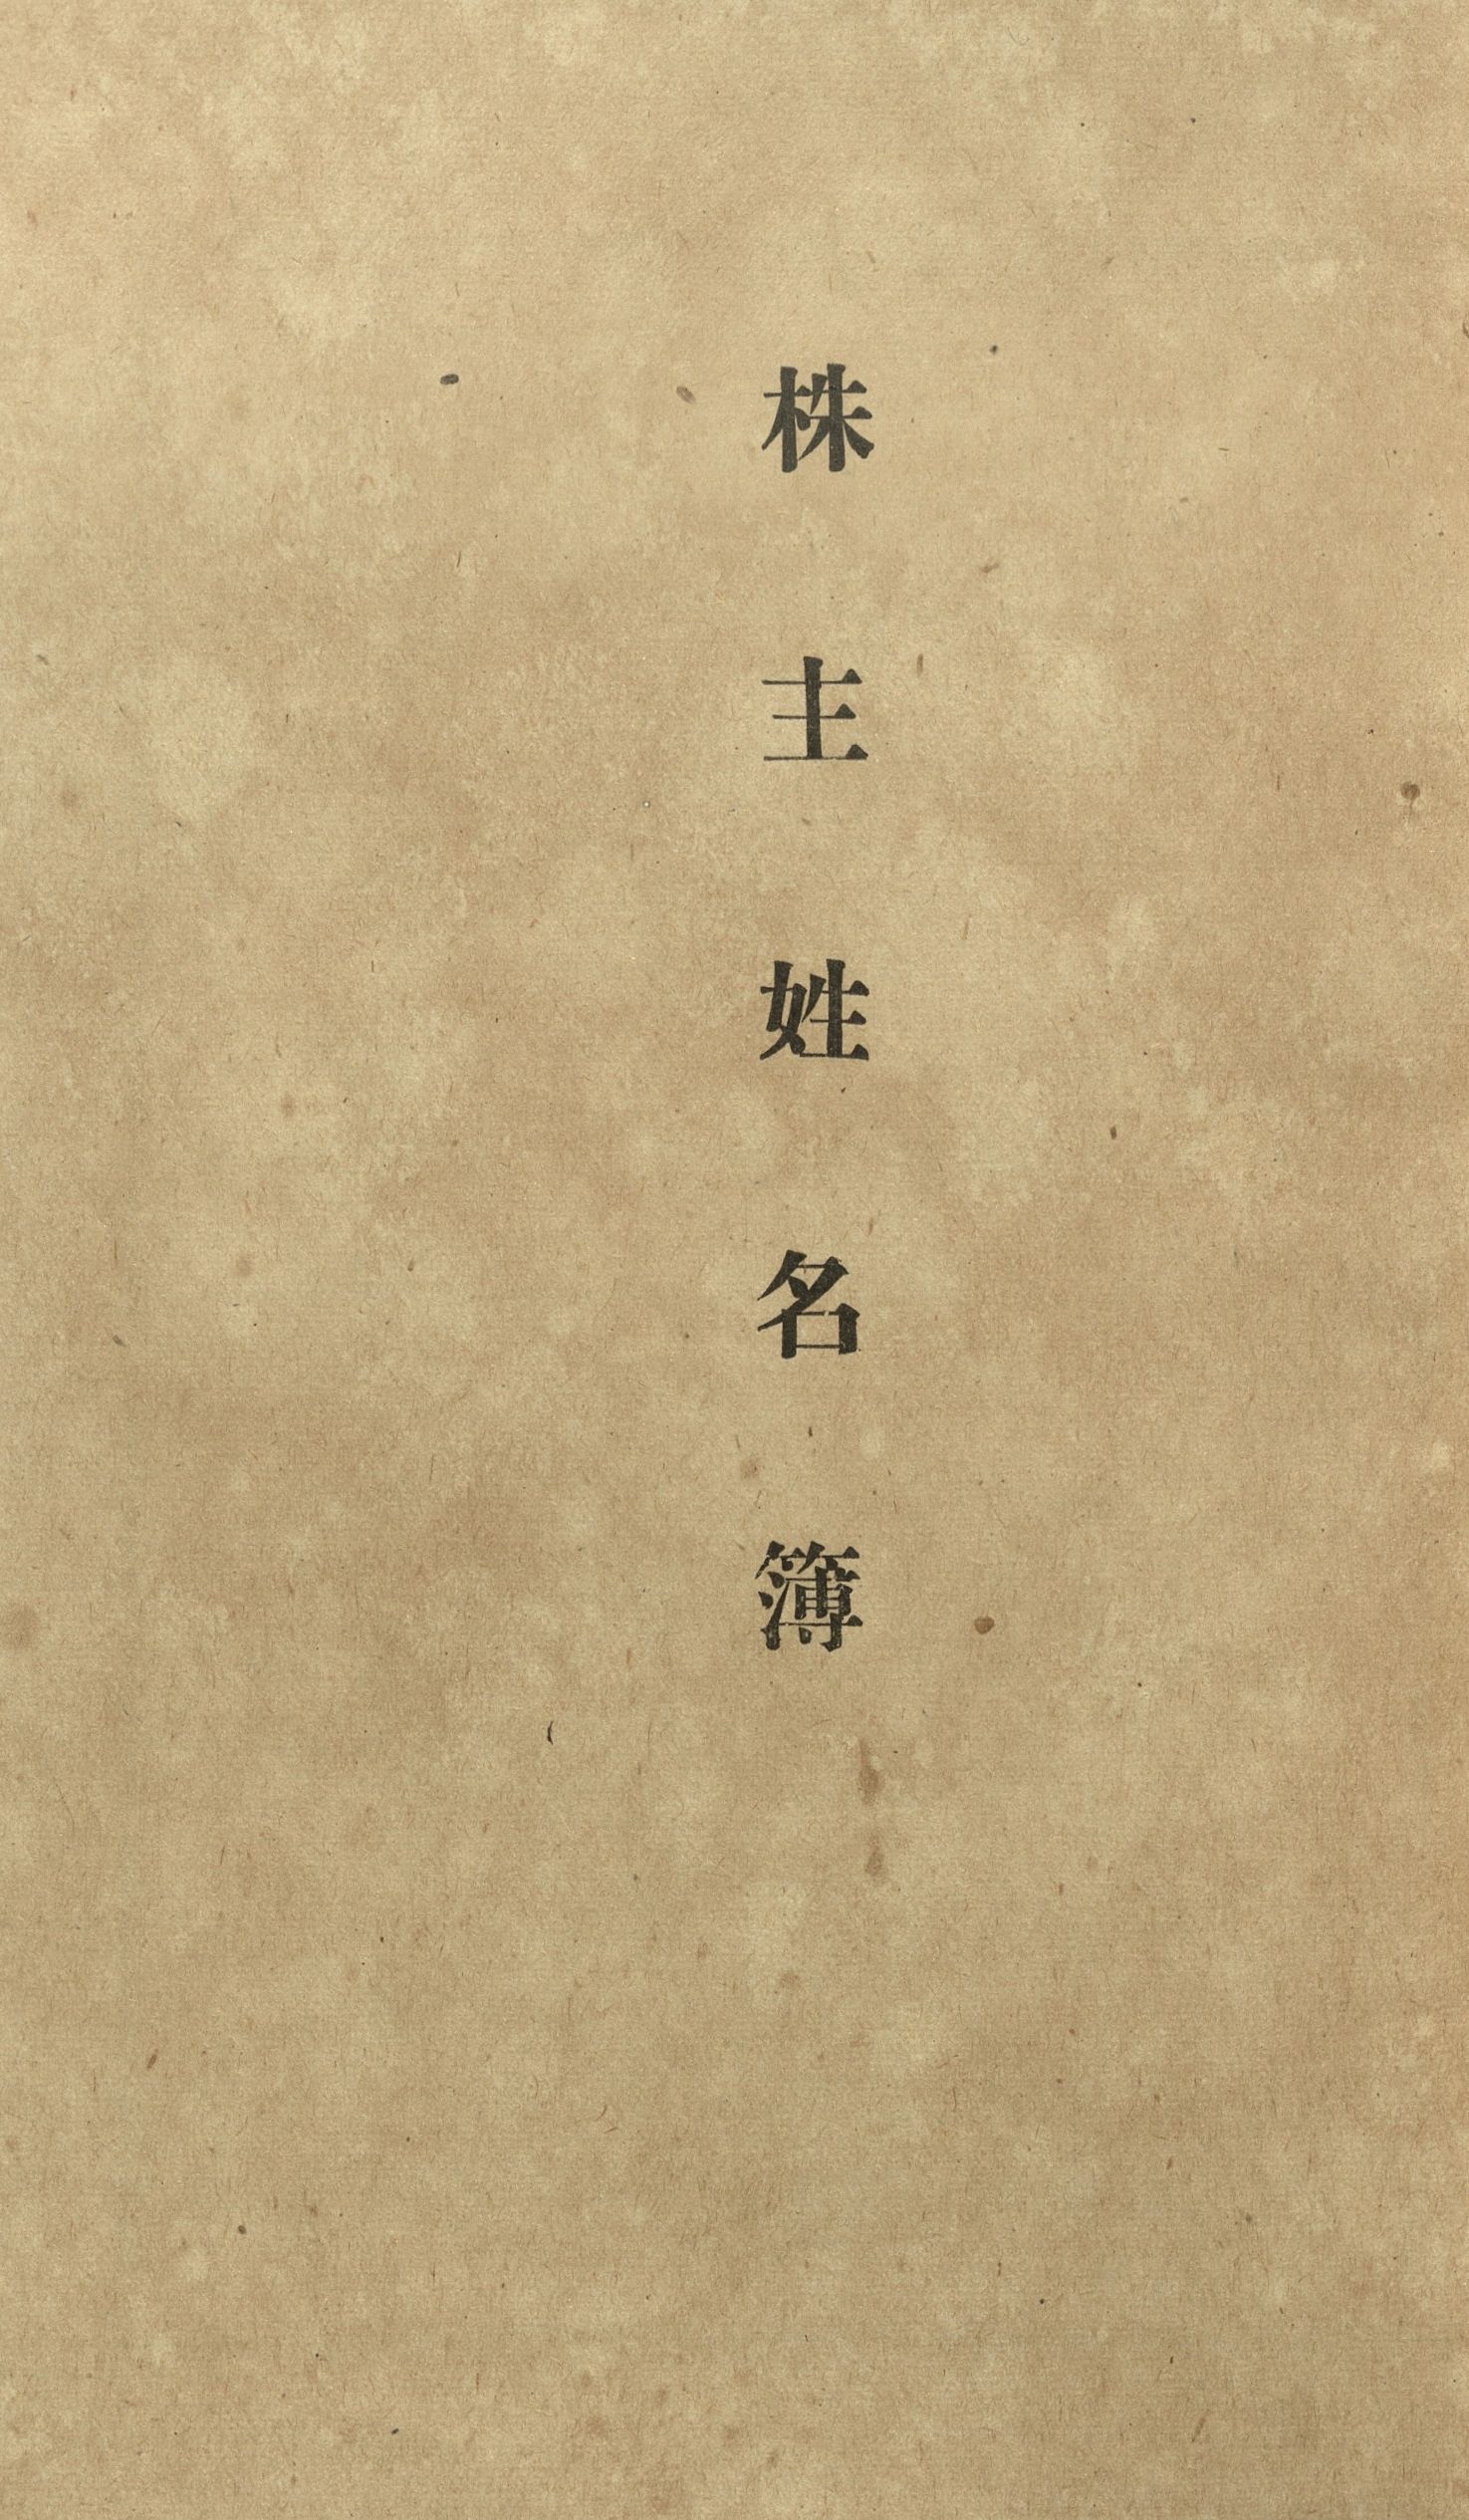 株主姓名簿